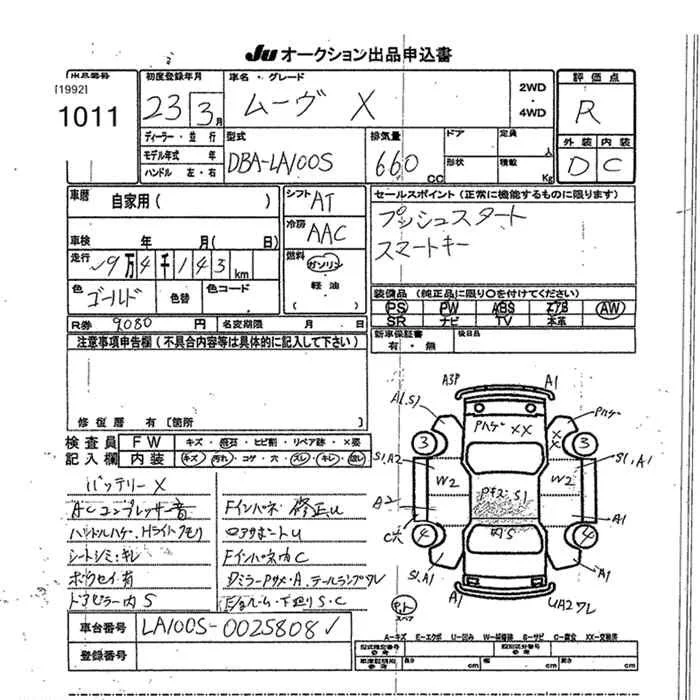 Ju オークション出品申込書
出品番号
[1992]
1011
初度登録年月
23 3月
車名・グレード
ムーヴ X
2WD
・
4WD
評価点
R
外装 内装
D C
ディーラー・並行
モデル年式 年
ハンドル 左・右
型式
DBA-LA100S
排気量
660 CC
ドア
定員
人
形状
積載
Kg
車歴
自家用 ( )
シフト AT
セールスポイント (正常に機能するものに限ります)
プッシュスタート
スマートキー
車検 年 月( 日)
冷房 AAC
走行
9万4千143km
燃料
ガソリン
軽油
( )
色 ゴールド
色替
色コード
装備品 (純正品に限り○を付けてください)
PS PW ABS エアB AW
SR ナビ TV 本革
R券 9080 円
名変期限 月 日
新車保証書
有・無
後日品
注意事項申告欄 (不具合内容等は具体的に記入して下さい)
修復歴 有 〔箇所 〕
検査員
記入欄
FW キズ・飛石・ヒビ割・リペア跡・X要
内装 キズ・汚れ・コゲ・穴・スレ・キレ・
バッテリーX
ACコンプレッサー音
ハンドルハゲ、Hライトクモリ
シートシミ・キレ
ドアピラー内S
Fインパネ 修正U
Fインパネ内C
DミラーPサメ・A、テールランプワレ
下廻りS・C
A3P
A1
A1,S1
Pハゲ
Pハゲ XX
XX
3
3
S1,A2
S1,A1
W2
W2
S1
A2
A1
C穴
4
4
内S
S1,A1
A1
A1
UA2ワレ
スペア
A-キズ E-エクボ U-凹み W-補修跡 S-サビ C-腐食 XX-交換済
車台番号
LA100S-0025808
登録番号
型式指定番号
参考
類別区分番号
参考
車庫証明用
参考
長さ cm
幅 cm
高さ cm